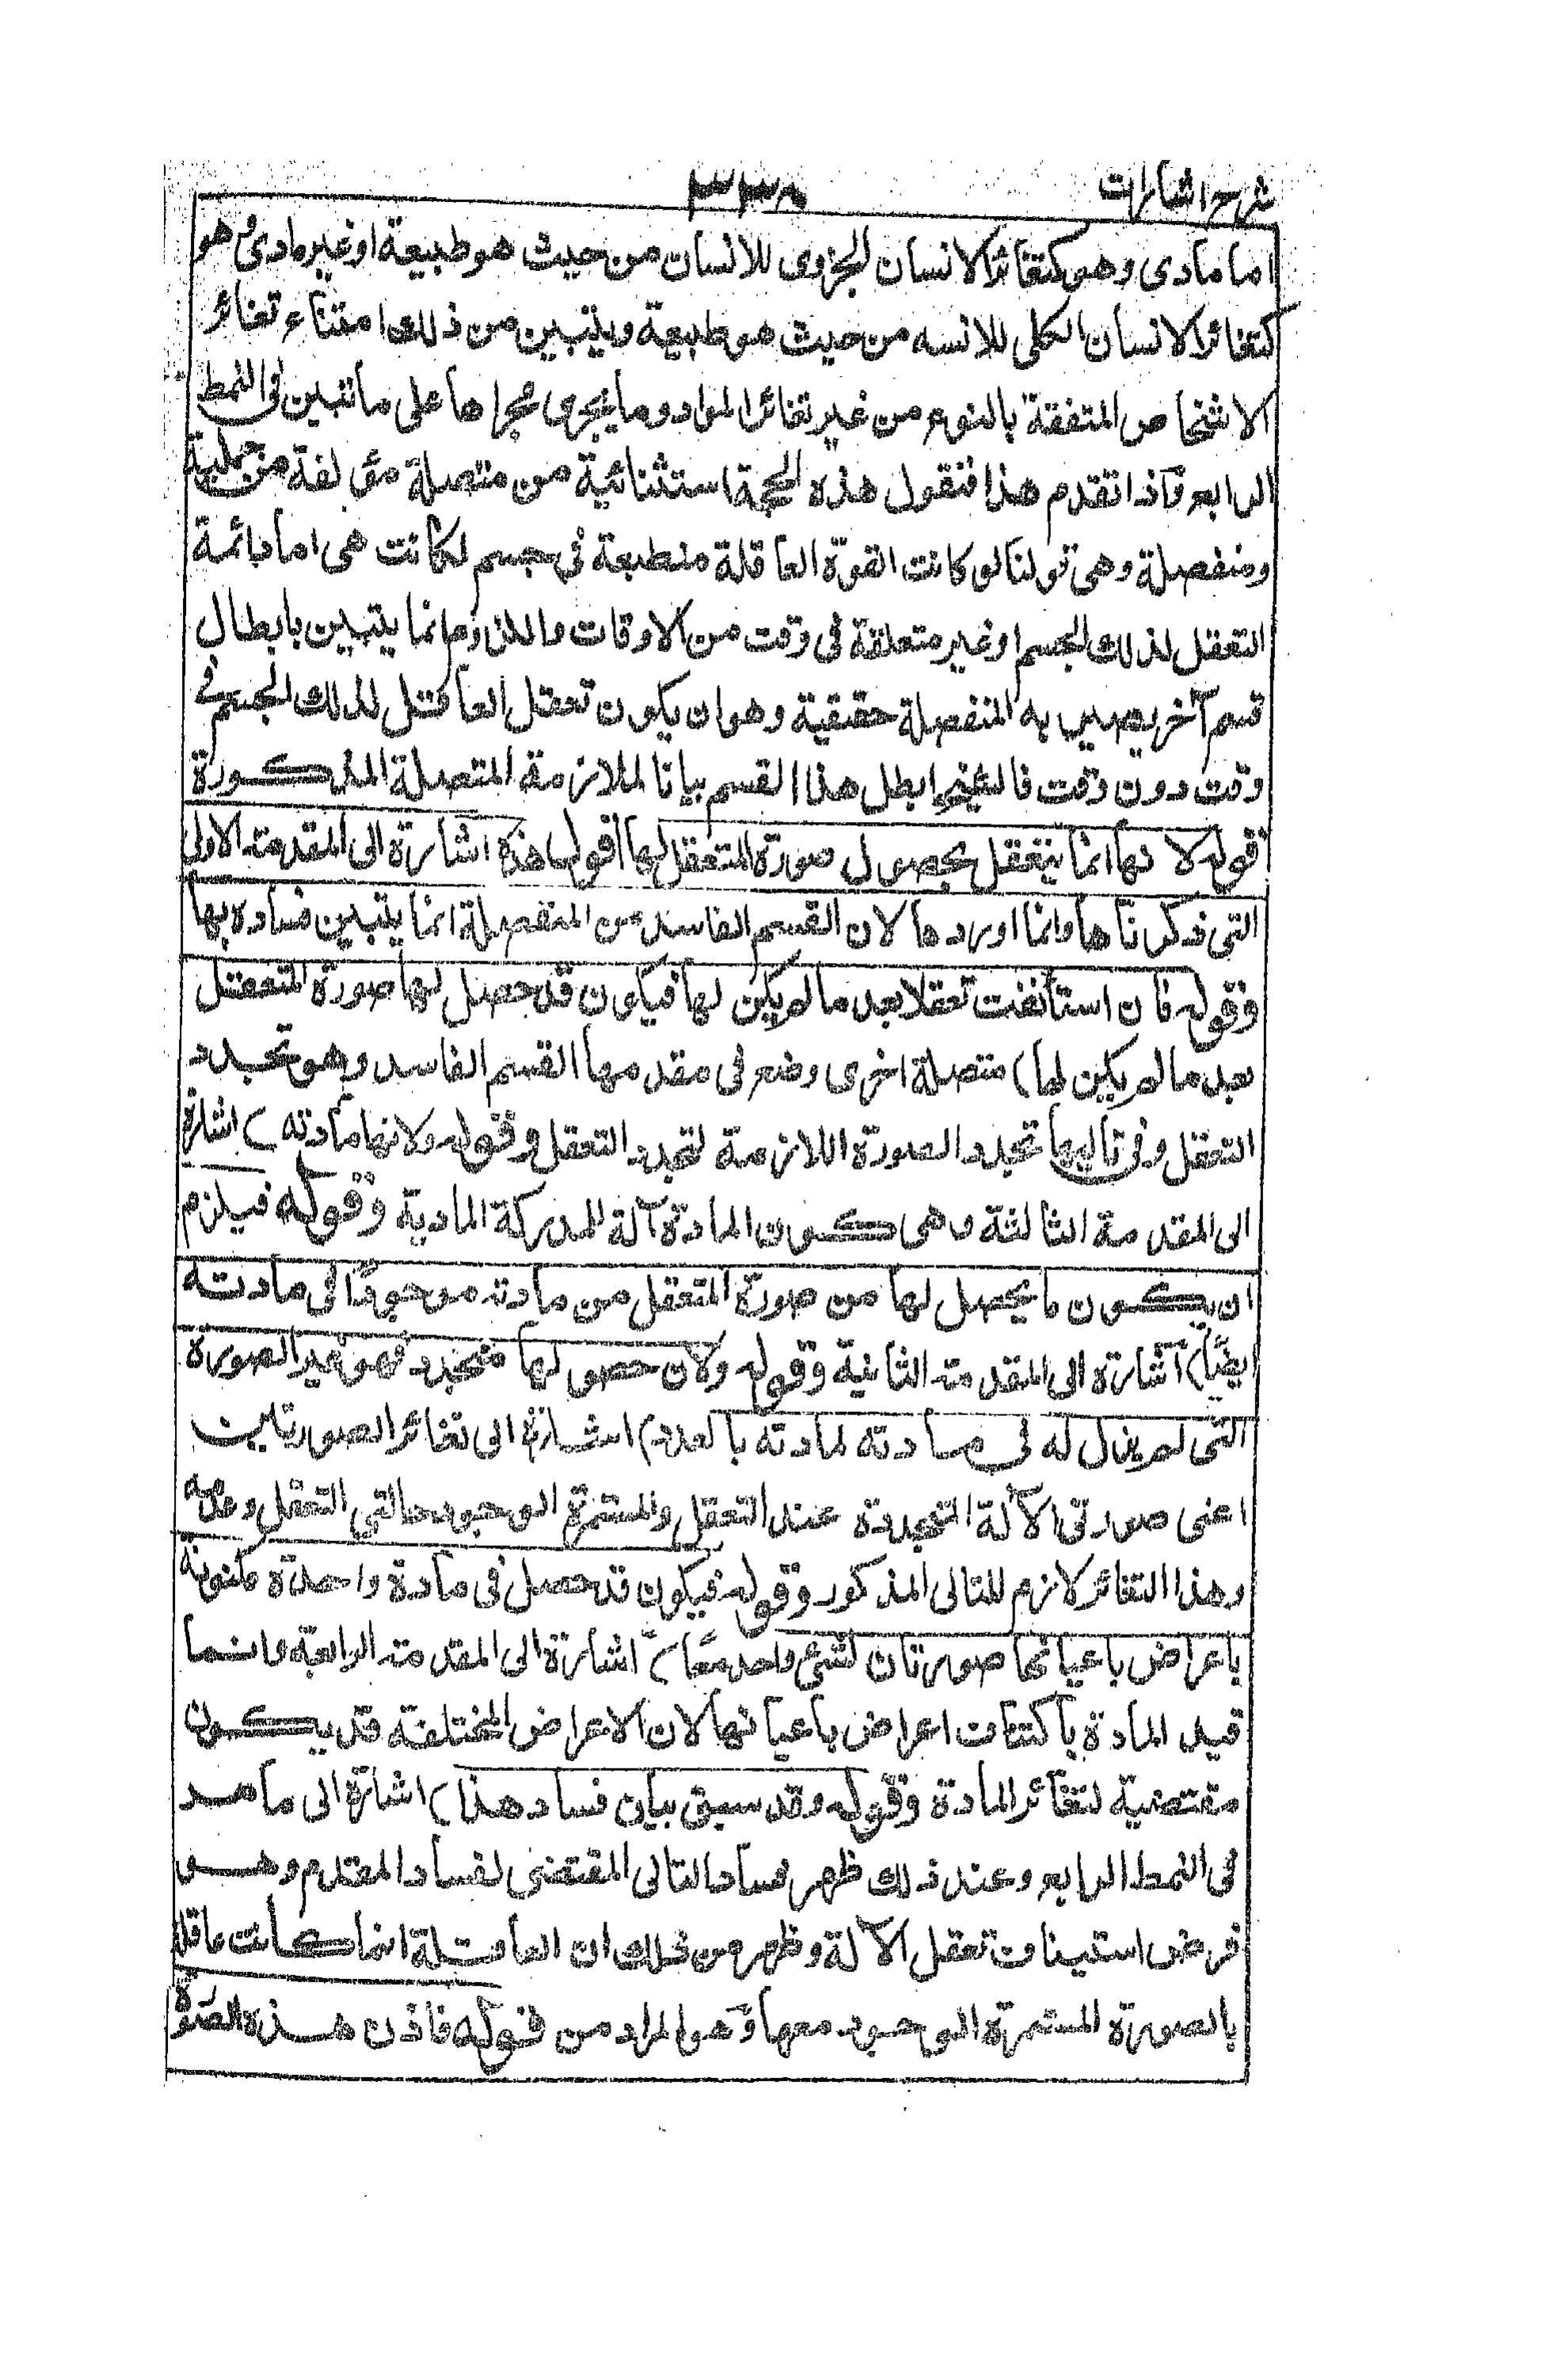 شرح اشارات
٣٣٨
اما مادى وهو كتغائر الانسان الجزوى للانسان من حيث هو طبيعة او غير مادى وهو
كتغائر الانسان الكلى للانسه من حيث هو طبيعة ويتبين من ذلك امتناع تغائر
الاشخاص المتفقة بالنوع من غير تغائر المواد وما يجرى مجراها على ما تبين فى النمط
الرابع واذا تقدم هذا فنقول هذه الحجة استثنائية من متصلة مؤلفة من حملية
ومنفصلة وهى قولنا لو كانت القوة العاقلة منطبعة فى جسم لكانت هى اما دائمة
التعقل لذلك الجسم او غير متعلقة فى وقت من الاوقات واللزوم انما يتبين بابطال
قسم آخر يصير به المنفصلة حقيقية وهو ان يكون تعقل العاقل لذلك الجسم فى
وقت دون وقت فالشيخ ابطل هذا القسم بيانا لملازمة المتصلة المذكورة
قوله لانها انما يتعقل بحصول صورة المتعقل لها اقول هذه اشارة الى المقدمة الاولى
التى ذكرناها وانما اوردها لان القسم الفاسد من المنفصلة انما يتبين فساده بها
وقوله فان استأنفت تعقلا بعد ما لم يكن لها فيكون قد حصل لها صورة المتعقل
بعد ما لم يكن لها) متصلة اخرى وضع فى مقدمها القسم الفاسد وهو تجدد
التعقل وفى تاليها تجدد الصورة اللازمة لتجدد التعقل وقوله ولانها مادته) اشارة
الى المقدمة الثالثة وهى كون المادة آلة للمدركة المادية وقوله فيلزم
ان يكون ما يحصل لها من صورة المتعقل من مادته موجودا فى مادته
ايضا) اشارة الى المقدمة الثانية وقوله ولان حصولها متجدد فهو غير الصورة
التى لم يزال له فى مادته لمادته بالعدد) اشارة الى تغائر الصورتين
اعنى صورتى الآلة المتجددة عند التعقل والمستمرة الوجود حالتى التعقل وعدمه
وهذا التغائر لازم للتالى المذكور وقوله فيكون قد حصل فى مادة واحدة مكنوفة
باعراض باعيانها صورتان لشئ واحد معا) اشارة الى المقدمة الرابعة وانما
قيد المادة باكتناف اعراض باعيانها لان الاعراض المختلفة قد يكون
مقتضية لتغائر المادة وقوله وقد سبق بيان فساد هذا) اشارة الى ما مهد
فى النمط الرابع وعند ذلك ظهر فساد التالى المقتضى لفساد المقدم وهو
فرض استيناف تعقل الآلة وظهر من ذلك ان العاقلة انما كانت عاقلة
بالصورة المستمرة الوجود معها وهو المراد من قوله فاذن هذه الصورة